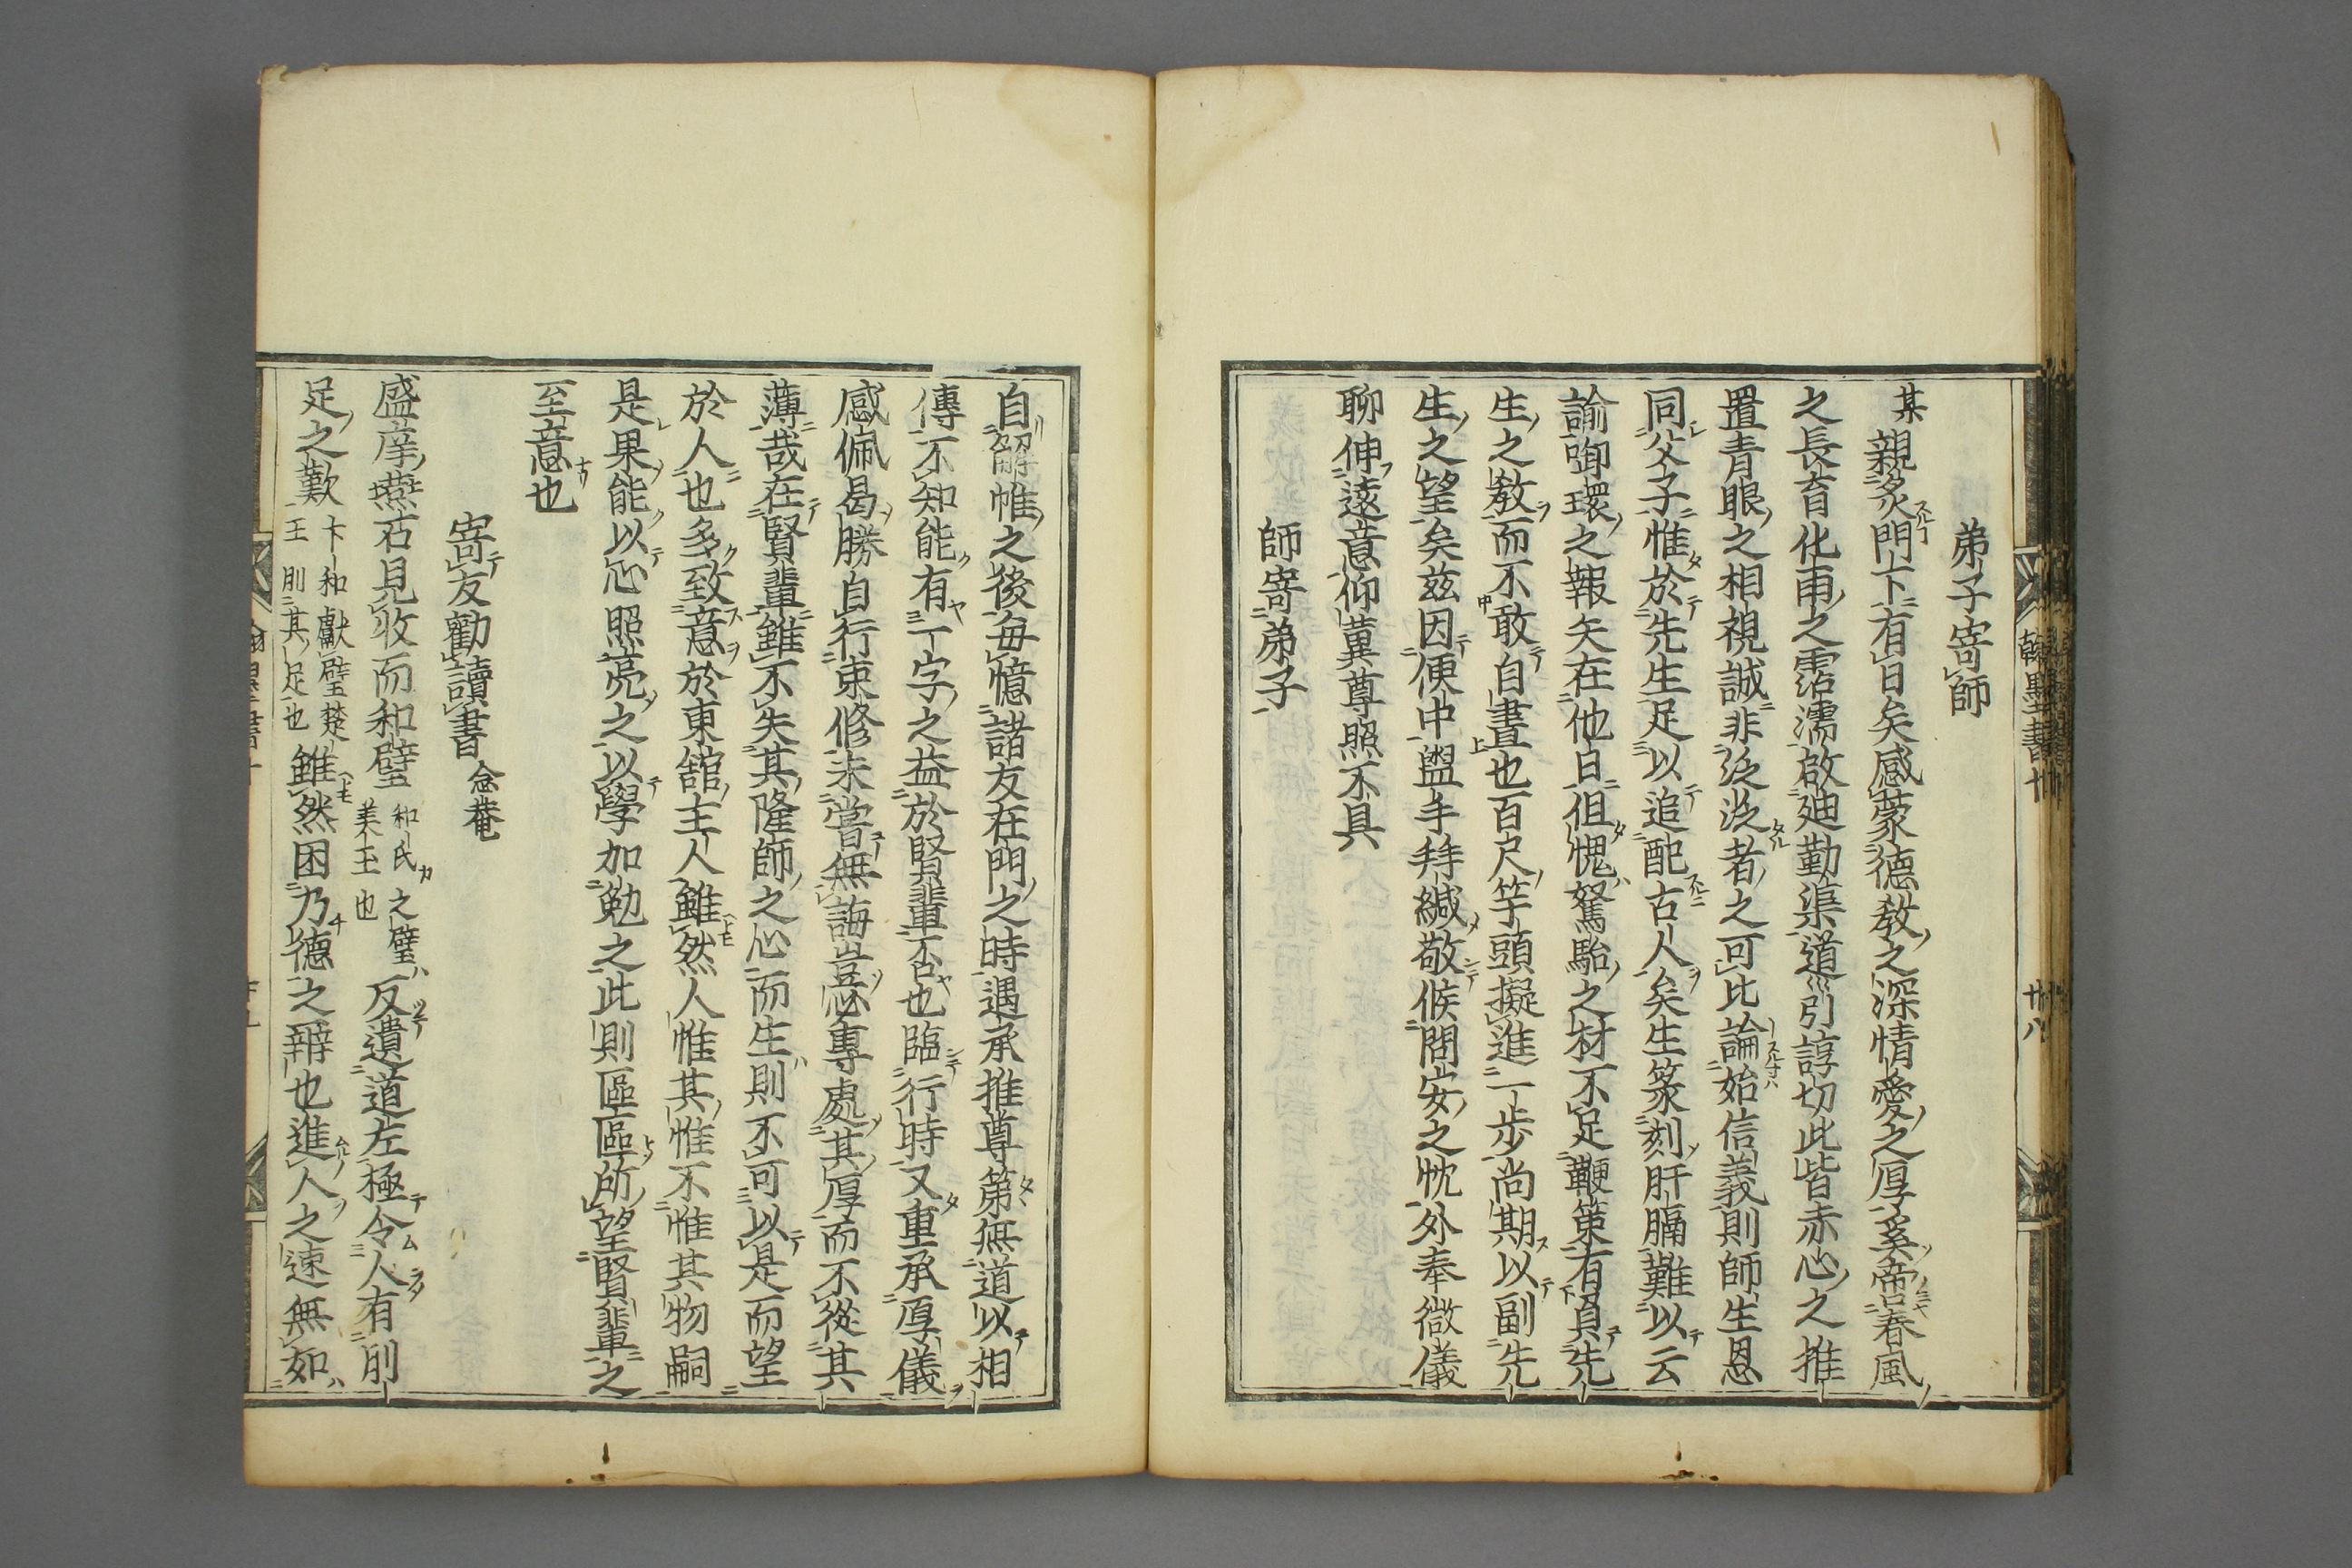 弟子寄師
某親炙門下有日矣感蒙德敎之深情愛之厚奚啻春風
之長育化雨之霑濡啟廸勤渠道引諄切此皆赤心之推
置青眼之相視誠非泛泛者之可比論始信義則師生恩
同父子惟於先生足以追配古人矣生篆刻肝膈難以云
諭啣環之報矢在他日但愧駑駘之材不足鞭策有負先
生之敎而不敢自晝也百尺竿頭擬進一步尚期以副先
生之望矣茲因便中盥手拜緘敬候問安之忱外奉微儀
聊伸遠意仰冀尊照不具
師寄弟子
自觧帷之後每憶諸友在門之時過承推尊第無道以相
傳不知能有一字之益於賢輩否也臨行時又重承厚儀
感佩曷勝自行束修未嘗無誨豈必專處其厚而不從其
薄哉在賢輩雖不失其隆師之心而生則不可以是而望
於人也多致意於東舘主人雖然人惟其惟不惟其物嗣
是果能以心照亮之以學加勉之此則區區所望賢輩之
至意也
寄友勸讀書 念菴
盛庠燕石見收而和璧 和氏之璧美玉也 反遺道左極令人有刖
足之歎 卞和獻璧楚王刖其足也 雖然困乃德之辨也進人之速無如
翰墨書十 廿八